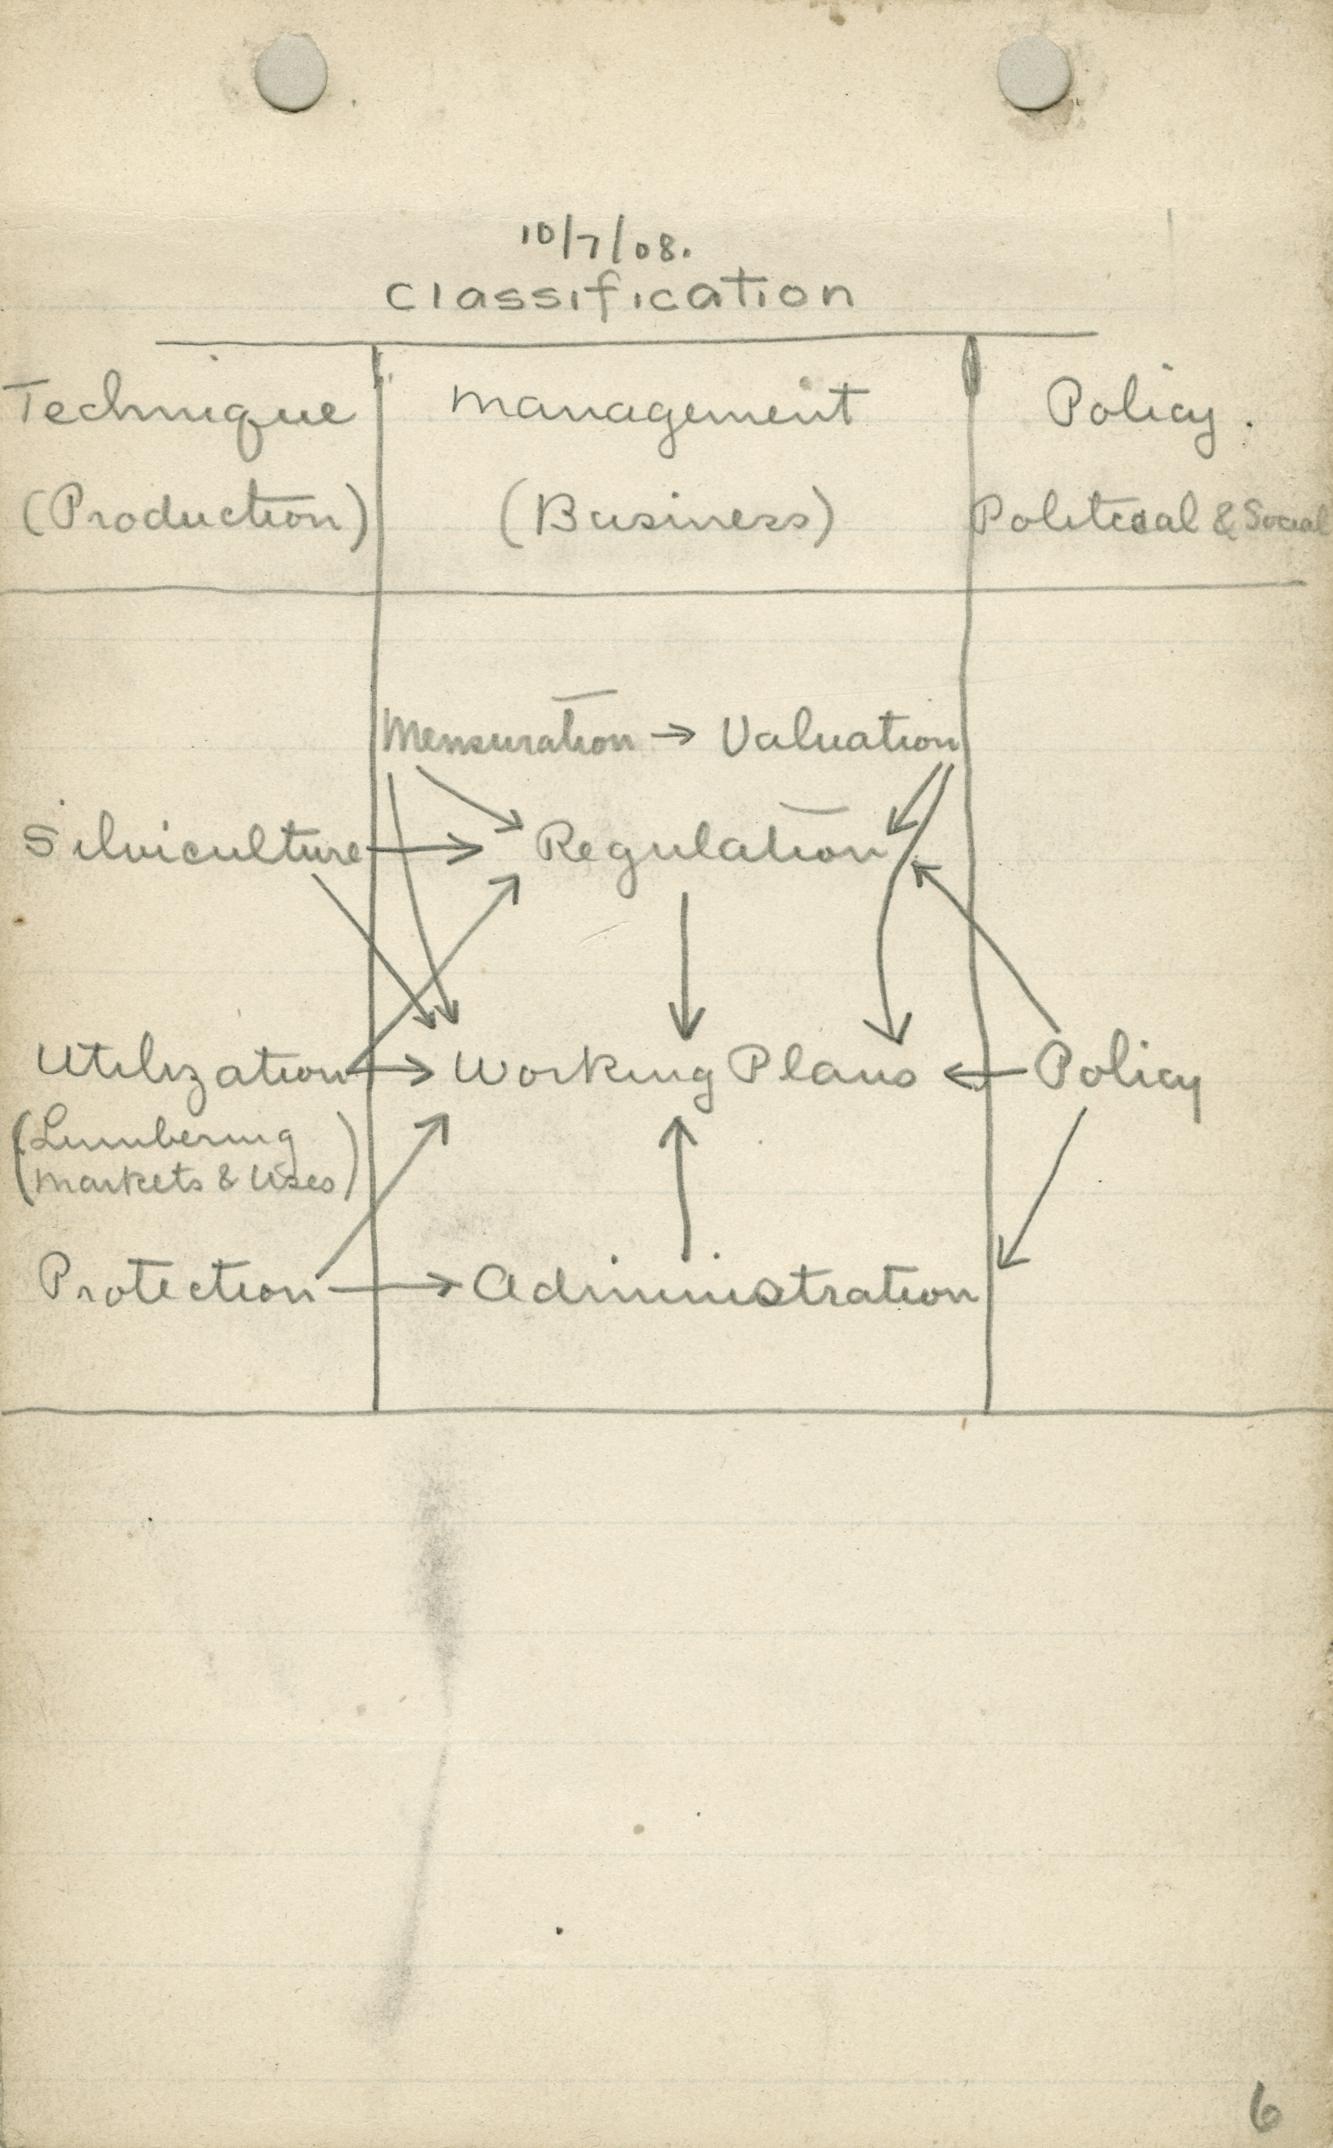 10/7/08.
Classification
Technique Management Policy.
(Production) (Business) Political & Social
Mensuration → Valuation
Silviculture → Regulation
Utilization → Working Plans ← Policy
(Lumbering
Markets & Uses)
Protection → Administration
6